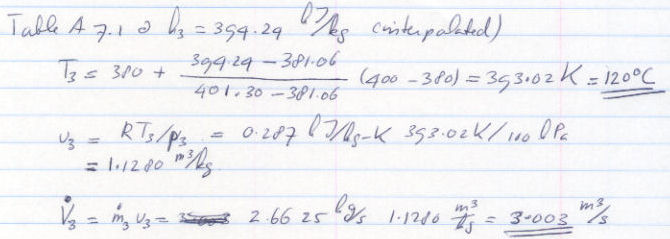 Table A 7.1 @ h₃ = 394.29 kJ/kg (interpolated)
T₃ = 380 + (394.29 - 381.06)/(401.30 - 381.06) (400 - 380) = 393.02 K = 120°C
υ₃ = RT₃/p₃ = 0.287 kJ/kg-K 393.02K/100 kPa
= 1.1280 m³/kg
V̇₃ = ṁ₃ υ₃ = 2.6625 kg/s 1.1280 m³/kg = 3.003 m³/s